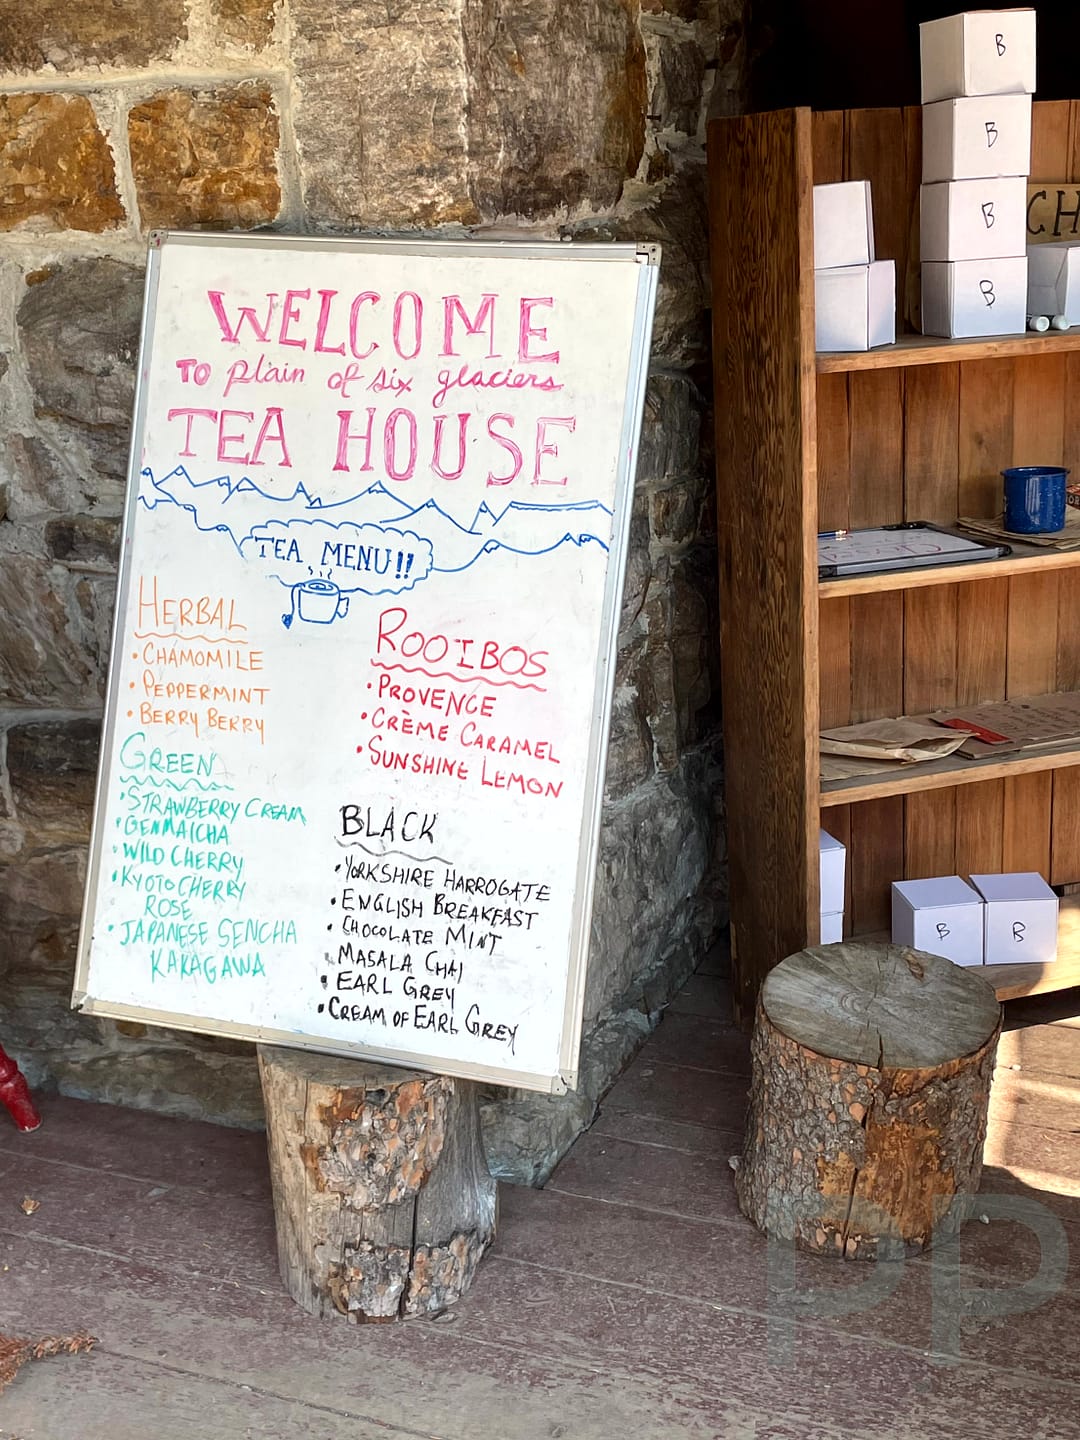 WELCOME
TO plain of six glaciers
TEA HOUSE
TEA MENU!!
HERBAL
• CHAMOMILE
• PEPPERMINT
• BERRY BERRY
GREEN
• STRAWBERRY CREAM
• GENMAICHA
• WILD CHERRY
• KYOTO CHERRY
ROSE
• JAPANESE SENCHA
KAKAGAWA
ROOIBOS
• PROVENCE
• CRÈME CARAMEL
• SUNSHINE LEMON
BLACK
• YORKSHIRE HARROGATE
• ENGLISH BREAKFAST
• CHOCOLATE MINT
• MASALA CHAI
• EARL GREY
• CREAM OF EARL GREY
B
B
B
B
CH
B
B
PP